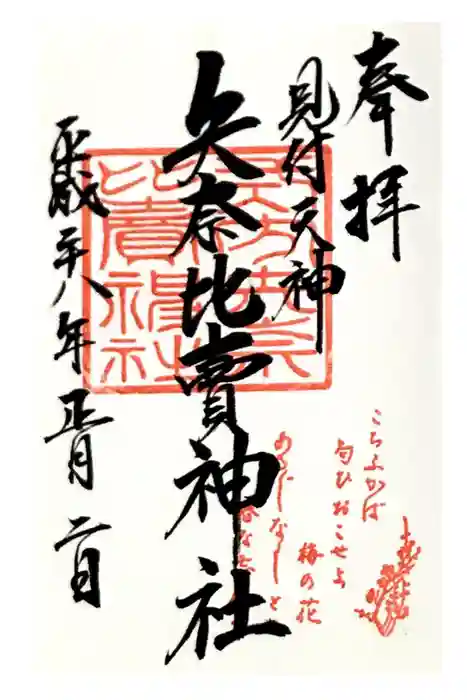 奉拝
見付天神
矢奈比賣神社
平成二十八年正月二日
こちふかば
匂ひおこせよ
梅の花
あるじなしと
春な